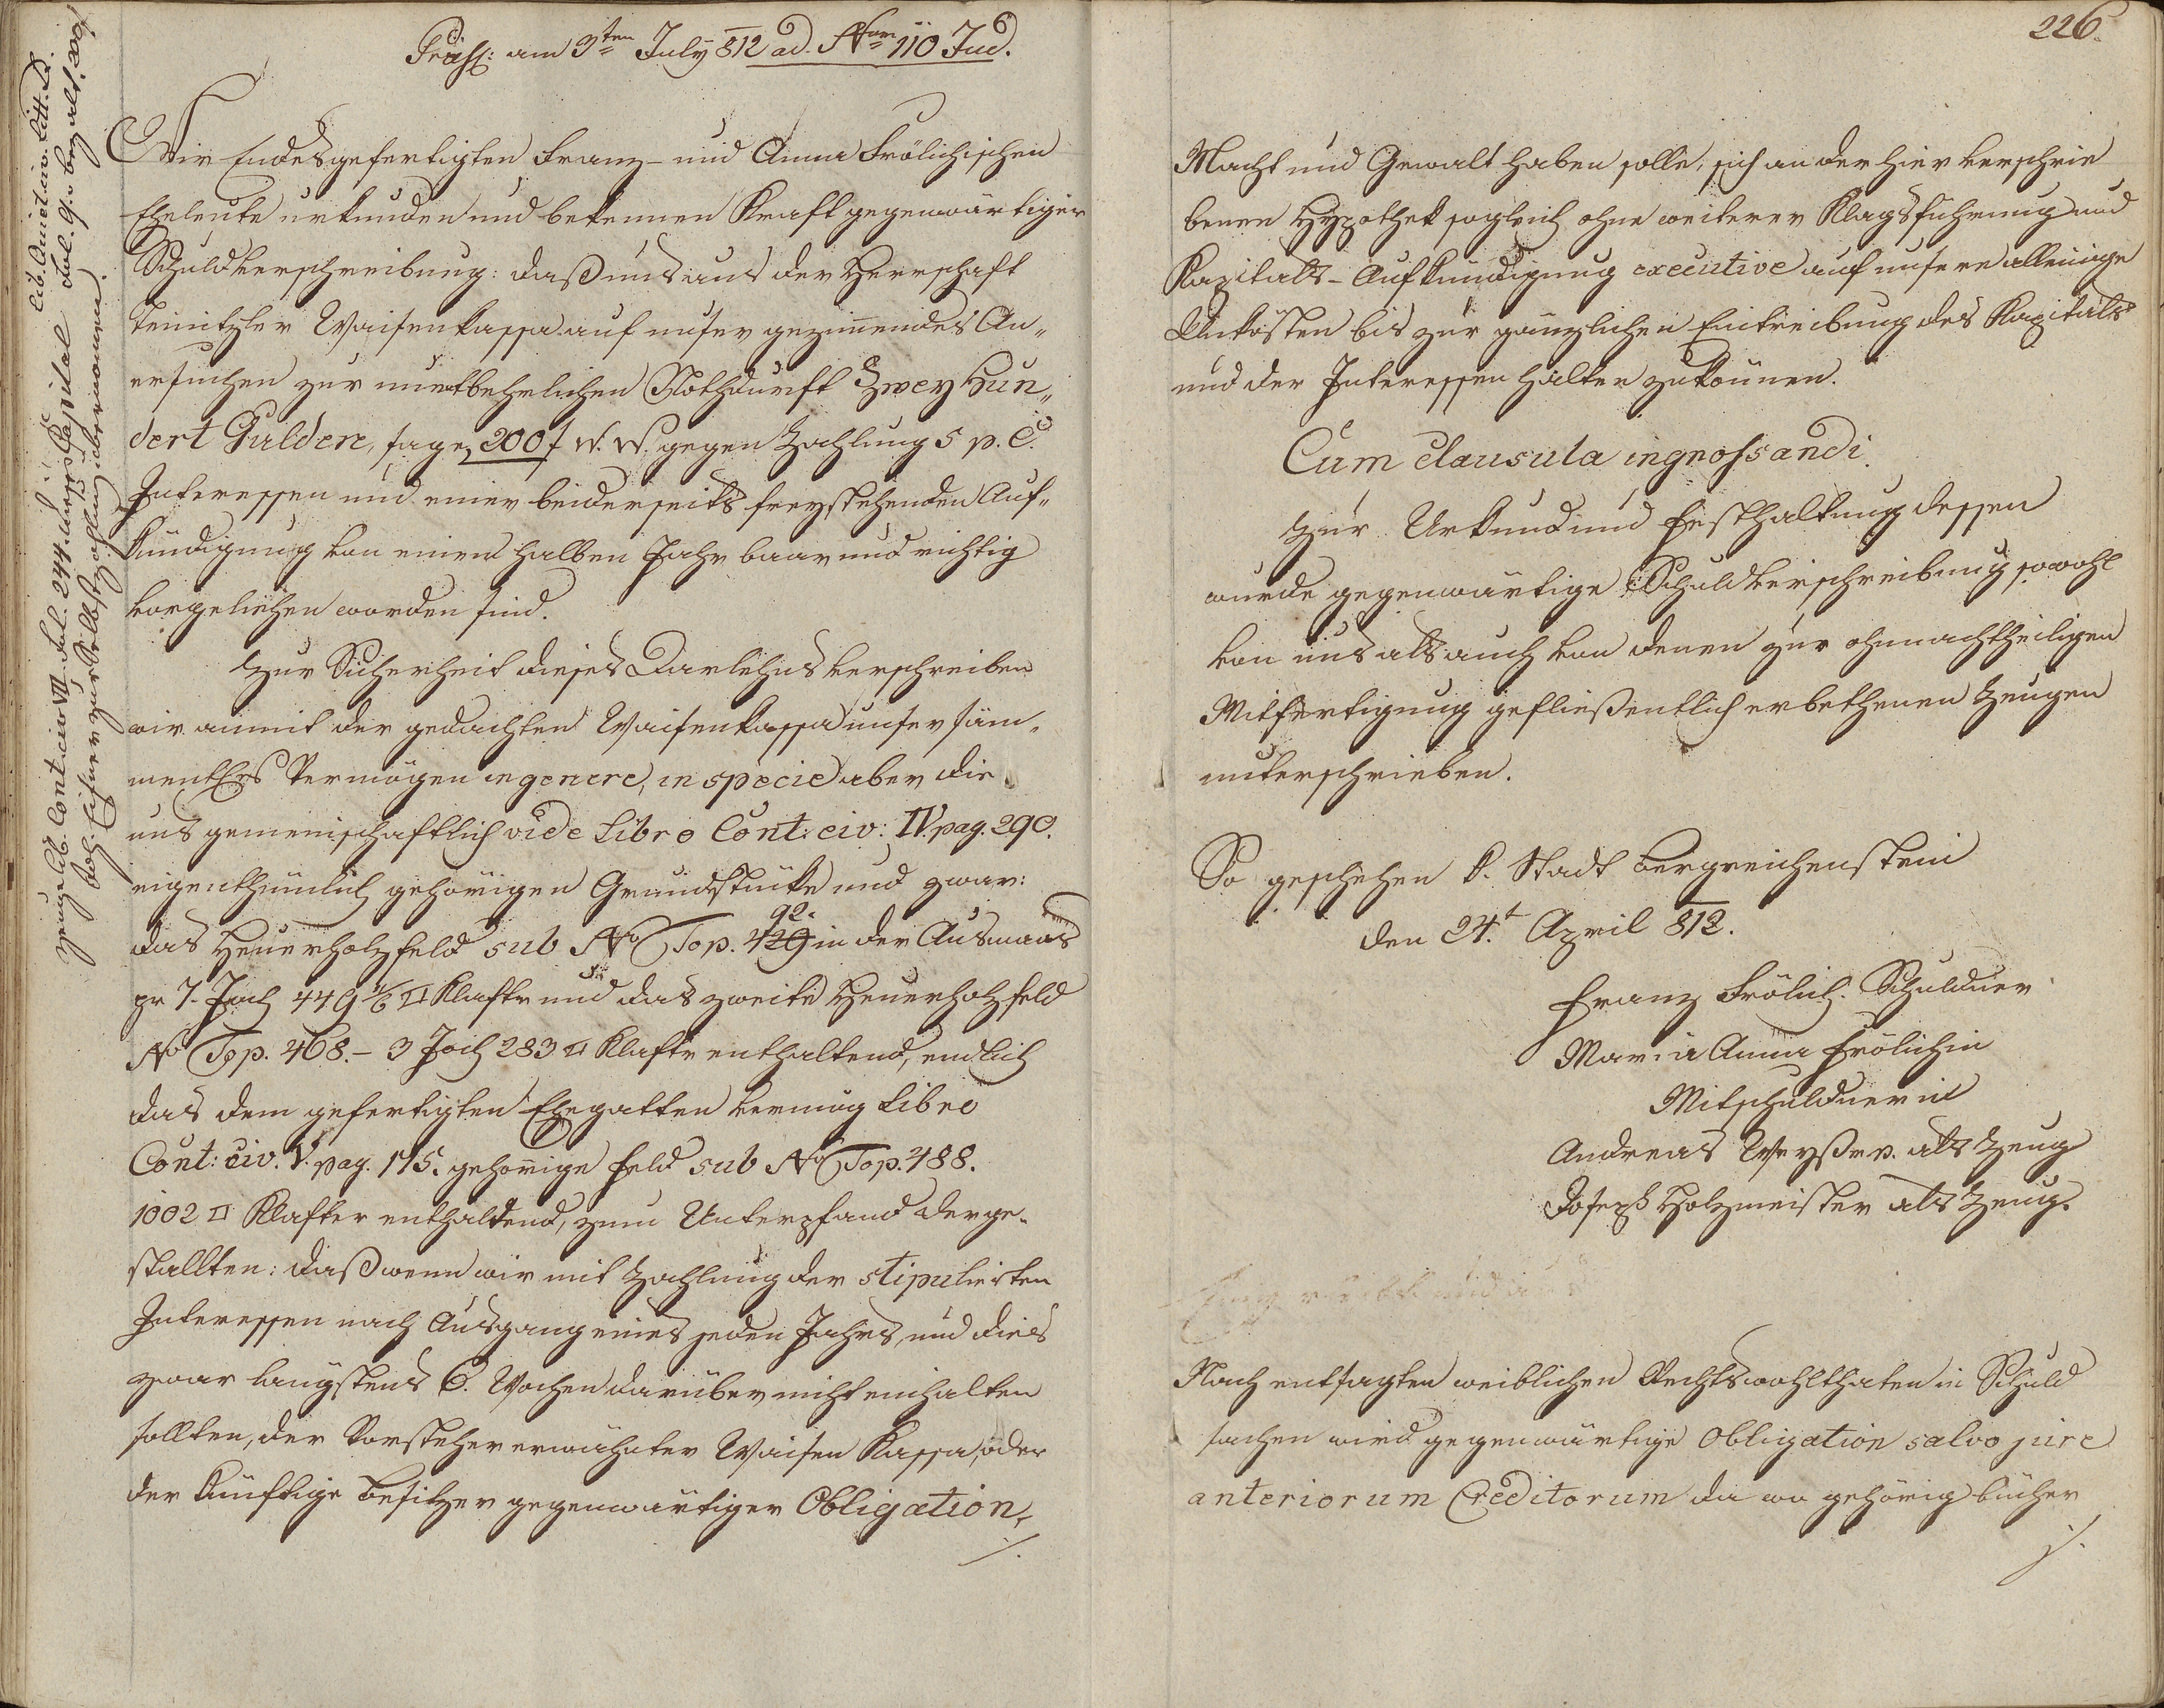 Präs: am 3ten July 812 ad Nrum 110 Jud.
Wir Endesgefertigten Franz- und Anna Frölichischen
Eheleute urkunden und bekennen Kraft gegenwärtiger
Schuldverschreibung: daß uns aus der Herrschaft
Teinitzler Waisenkassa auf unser geziemendes An„
ersuchen zur unentbehrlichen Nothdurft Zwey Hun„
dert Gulden, sage 200 f W. W. gegen Zahlung 5 p. C.
Interessen und einer beiderseits freystehenden Auf„
kündigung von einem halben Jahr baar und richtig
vorgeliehen worden sind.
Zur Sicherheit dieses Darlehns verschreiben
wir anmit der gedachten Waisenkassa unser säm„
mentlichs Vermögen in genere, in specie aber die
uns gemeinschaftlich vide Libro Cont: civ: IV. pag. 290.
eigenthümlich gehörigen Grundstücke und zwar:
92.
das Heuerholzfeld sub No Top. 429 in der Ausmaas
pr 7. Joch 449 1/6 □ Klaftr und das zweite Heuerholzfeld
No Top. 468. – 3 Joch 283 □ Klaftr enthaltend, endlich
das dem gefertigten Ehegatten vermög Libro
Cont: civ. V. pag. 175. gehörige Feld sub No Top. 488.
1002 □ Klafter enthaltend, zum Unterpfand derge„
stallten: daß wenn wir mit Zahlung der stipulirten
Interessen nach Ausgang eines jeden Jahrs, und dies
zwar längstens 6. Wochen darüber nicht einhalten
sollten, der Vorsteher erwähnter Waisen Kassa, oder
der künftige Besitzer gegenwärtiger Obligation,
./.
lib. Quiet. civ. Litt. D.
fol. 9. bezalt. 209
lib. Contr. civ VII. fol. 244. Capital
zur Selbstzahlung übernommen.
226.
Macht und Gewalt haben solle, sich an der hier verschrie
benen Hypothek sogleich ohne weiterer Klagsführung und
Kapitals-Aufkündigung executive auf unsere alleinige
Unkösten bis zur gänzlichen Eintreibung des Kapitals
und der Interessen halten zu können.
Cum Clausula ingrossandi.
Zur Urkund und Festhaltung dessen
wurde gegenwärtige Schuldverschreibung sowohl
von uns als auch von denen zur ohnnachtheiligen
Mitfertigung gefließentlich erbethenen Zeugen
unterschrieben.
So geschehen K. Stadt Bergreichenstein
den 24.t April 812.
Franz Frölich. Schuldner
Maria Anna Frölichin
Mitschuldnerin
Andreas als Zeug
Joseph Holzmeister als Zeug.
Nach entsagten weiblichen Rechtswohlthaten in Schuld
sachen wird gegenwärtige Obligation salvo jure
anteriorum Creditorum da wo gehörig bücher
./.